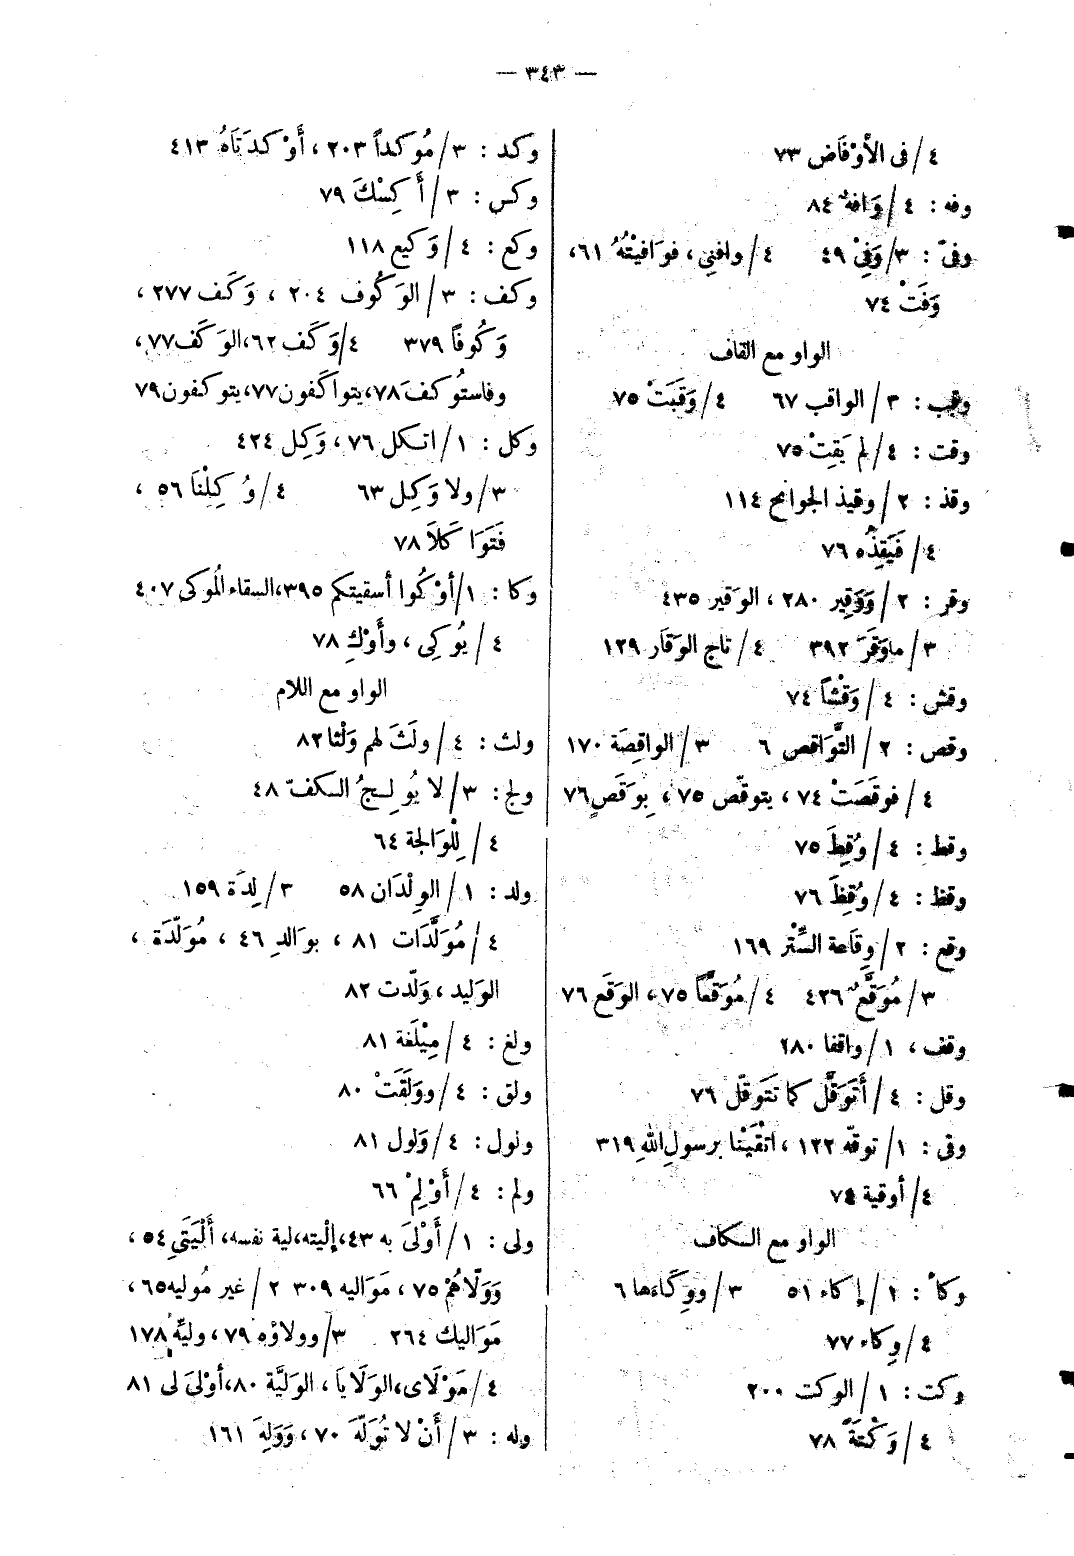 — ٣٤٣ —
٤/ فى الأوْفَاض ٧٣
وفه : ٤/ وَافهٌ ٨٤
وفىّ : ٣/ وَفِىْ ٤٩ ٤/ وافنِى ، فوَافيْتُهُ ٦١،
وَفَتْ ٧٤
الواو مع القاف
وقب : ٣/ الواقب ٦٧ ٤/ وَقَبَتْ ٧٥
وقت : ٤/ لم يَقِتْ ٧٥
وقذ : ٢/ وقيذ الجوانح ١١٤
٤/ فَيَقِذُه ٧٦
وقر : ٢/ وَوَقِير ٢٨٠ ، الوَقير ٤٣٥
٣/ ماوَقَرَ ٣٩٢ ٤/ تاج الوَقَار ١٢٩
وقش : ٤/ وَقْشًا ٧٤
وقص : ٢/ التَّوَاقص ٦ ٣/ الواقِصَة ١٧٠
٤/ فوقَصَتْ ٧٤ ، يتوقّص ٧٥ ، بِوَقَصٍ ٧٦
وقط : ٤/ وُقِطَ ٧٥
وقظ : ٤/ وُقِظَ ٧٦
وقع : ٢/ وِقَاعة السِّتْر ١٦٩
٣/ مُوَقَّعٌ ٤٢٦ ٤/ مُوَقَّعًا ٧٥ ، الوَقَع ٧٦
وقف ، ١/ واقفا ٢٨٠
وقل : ٤/ أَتَوَقَّل كما تَتَوقّل ٧٦
وقى : ١/ توقّه ١٢٢ ، اتْقَيْنا برسولِ اللهِ ٣١٩
٤/ أوقية ٧٤
الواو مع الكاف
وكأ : ١/ إكاء ٥١ ٣/ ووِكَاءَها ٦
٤/ وِكاء ٧٧
وكت : ١/ الوكت ٢٠٠
٤/ وَكْتَةً ٧٨
وكد : ٣/ مُوكداً ٢٠٣ ، أَوْكدَتَاهُ ٤١٣
وكس : ٣/ أَكِسْكَ ٧٩
وكع : ٤/ وَكيع ١١٨
وكف : ٣/ الوَكُوف ٢٠٤ ، وَكَف ٢٧٧ ،
وَكُوفًا ٣٧٩ ٤/ وَكَف ٦٢، الوَكَف ٧٧،
وفاستُوكفَ ٧٨، يتواكَفون ٧٧، يتوكفون ٧٩
وكل : ١/ اتكل ٧٦ ، وَكِل ٤٢٤
٣/ ولا وَكِل ٦٣ ٤/ وُكِلْنَا ٥٦ ،
فَتَوَاكَلَا ٧٨
وكا : ١/ أوْكُوا أسقيتكم ٣٩٥، السقاء المُوكى ٤٠٧
٤/ يُوكِى ، وأَوْكِ ٧٨
الواو مع اللام
ولث : ٤/ ولَثَ لهم وَلْثا ٨٢
ولج : ٣/ لا يُولِجُ الكفّ ٤٨
٤/ لِلْوَالجة ٦٤
ولد : ١/ الوِلْدَان ٥٨ ٣/ لِدَة ١٥٩
٤/ مُوَلَّدَات ٨١ ، بوَالدِ ٤٦ ، مُوَلّدَة ،
الوَليد ، وَلّدت ٨٢
ولغ : ٤/ مِيْلَغة ٨١
ولق : ٤/ ووَلَقَتْ ٨٠
ولول : ٤/ وَلول ٨١
ولم : ٤/ أَوْلِمْ ٦٦
ولى : ١/ أَوْلَىَ به ٤٣، إلْيته، لية نفسه، أَلْيَتَىِ ٥٤ ،
وَوَلّاهُمْ ٧٥ ، مَوَاليه ٣٠٩ ٢/ غير مُوليه ٦٥،
مَوَاليك ٢٦٤ ٣/ وولاؤه ٧٩ ، وليِّهُ ١٧٨
٤/ مَوْلَاى، الوَلَايَا ، الوَليَّة ٨٠، أوْلىَ لى ٨١
وله : ٣/ أَنْ لا تُوَلّهَ ٧٠ ، وَوَلِهَ ١٦١